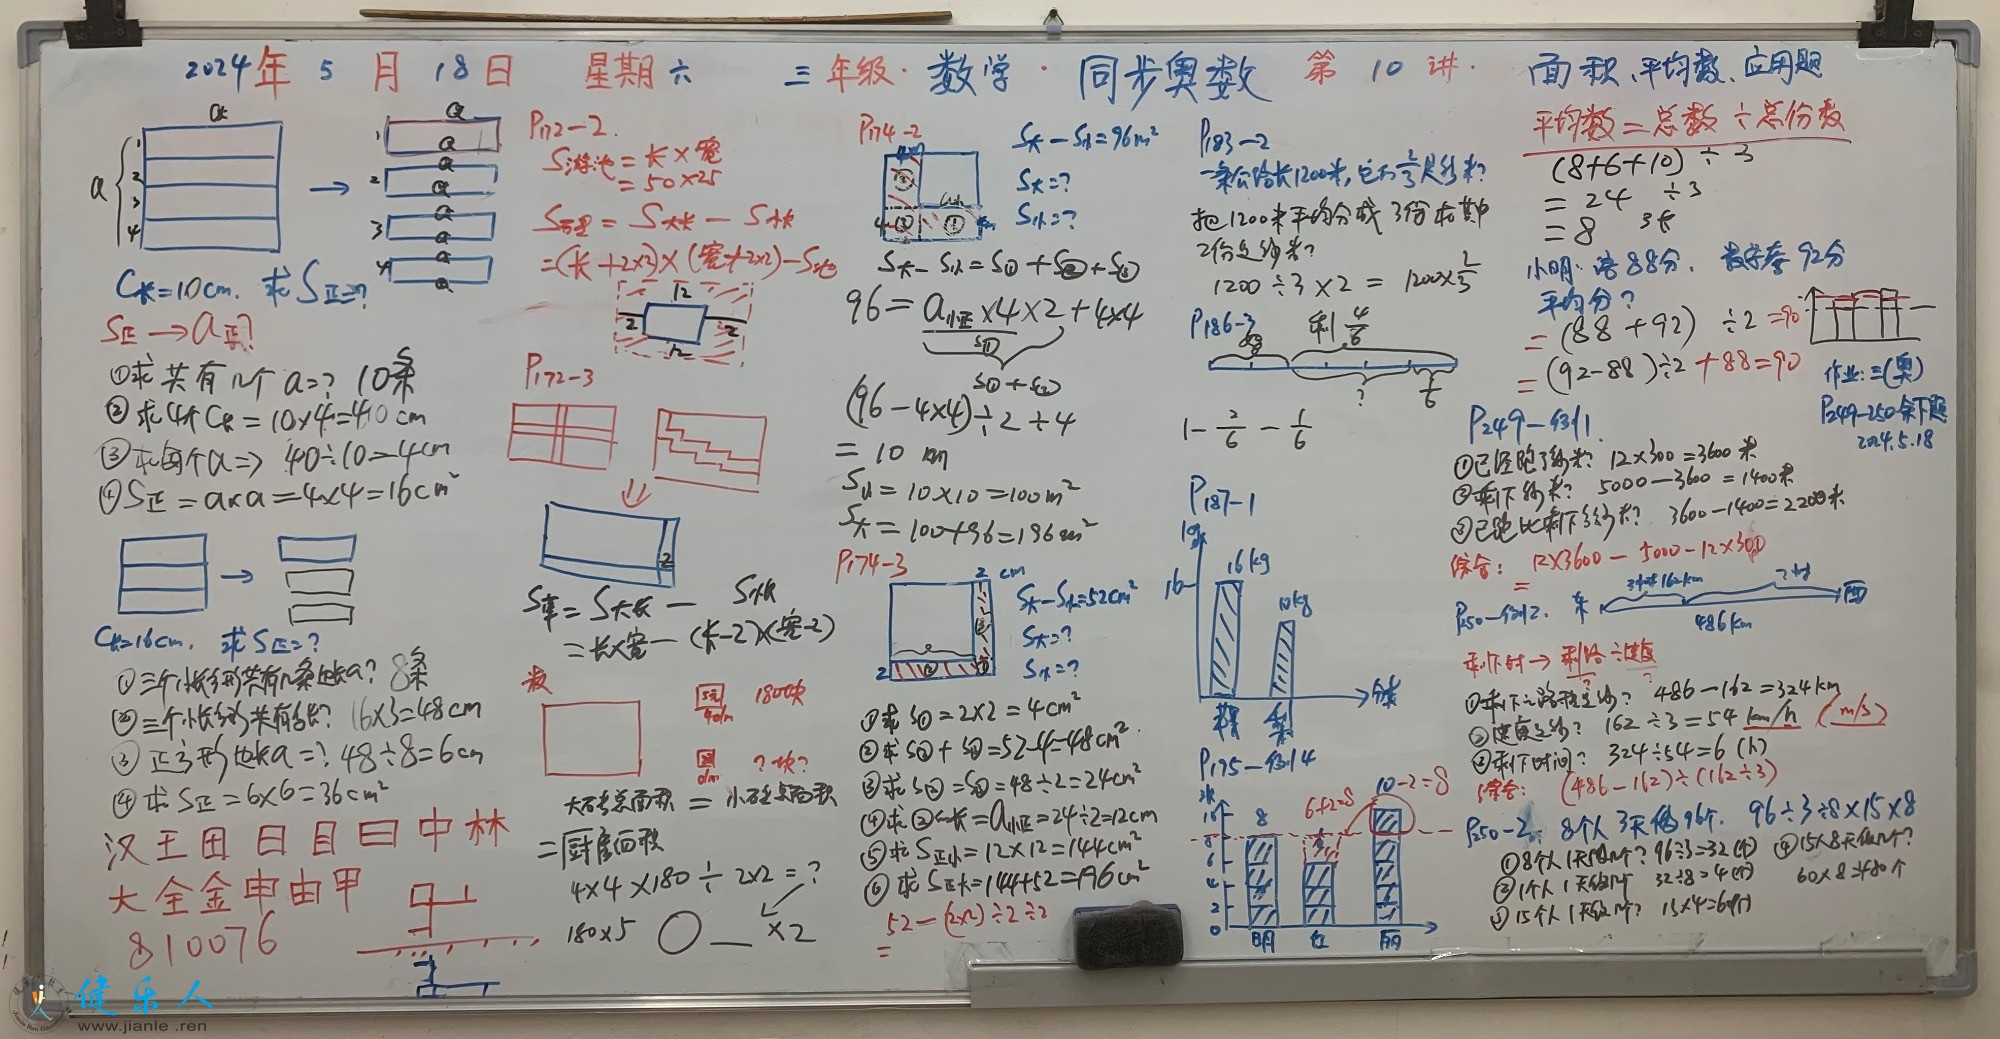 2024年5月18日 星期六 三年级·数学·同步奥数 第10讲· 面积、平均数、应用题
a
a
1
2
3
4
C长=10cm. 求S正=?
S正→a正?
①求共有几个a=? 10条
②求4个C长=10×4=40cm
③求每个a=> 40÷10=4cm
④S正=a×a=4×4=16cm²
C长=16cm. 求S正=?
①三个小长方形共有几条边长a? 8条
②三个小长方形共有多长? 16×3=48cm
③正方形边长a=? 48÷8=6cm
④求S正=6×6=36cm²
汉王田日目曰中林
大全金申由甲
810076
P172-2.
S游池=长×宽
=50×25
S大长-S小长
=(长+2×2)×(宽+2×2)-S池
12
2
2
12
P172-3
2
S草=S大长-S小长
=长×宽-(长-2)×(宽-2)
180块
?块?
大砖总面积=小砖总面积
=厨房面积
4×4×180÷2×2=?
180×5
×2
P174-2
S大-S小=96m²
S大=?
S小=?
S大-S小=S①+S②+S③
96=a小正×4×2+4×4
(96-4×4)÷2÷4
=10m
S小=10×10=100m²
S大=100+96=196m²
P174-3
2cm
S大-S小=52cm²
S大=?
S小=?
2
①求S①=2×2=4cm²
②求S②+S③=52-4=48cm².
③求S②=S③=48÷2=24cm²
④求②的长=a小正=24÷2=12cm
⑤求S正小=12×12=144cm²
⑥求S正大=144+52=196cm²
52-(2×2)÷2÷2
=
P183-2
一条公路长1200米,它的2/3是多少米?
把1200米平均分成3份求其中
2份是多少米?
1200÷3×2=1200×2/3
P186-3 剩4/6
?
1/6
1-2/6-1/6
P187-1
16
16kg
10kg
P175-例4
10-2=8
6+2=8
8
10
8
6
4
2
0
明 红 丽
平均数=总数÷总份数
(8+6+10)÷3
=24÷3
=8
小明·语88分. 数学考92分
平均分?
=(88+92)÷2=90
=(92-88)÷2+88=90
作业:三(奥)
P249-250余下题
2024.5.18
P249-例1.
①已经跑了多少米? 12×300=3600米
②剩下多少米? 5000-3600=1400米
③已跑比剩下多多少米? 3600-1400=2200米
综合: 12×3600-5000-12×300
=
P250-例2. 东 3小时162km ?时 西
486km
剩下时→剩路÷速度
①剩下之路程是多少? 486-162=324km
②速度是多少? 162÷3=54km/h (m/s)
③剩下时间? 324÷54=6(h)
综合: (486-162)÷(162÷3)
P250-2. 8个人3天做96个. 96÷3÷8×15×8
①8个人1天做几个? 96÷3=32(个)
②1个人1天做几个 32÷8=4(个)
③15个人1天做几个? 15×4=60(个)
④15人8天做几个?
60×8=480个
健乐人
www.jianle.ren